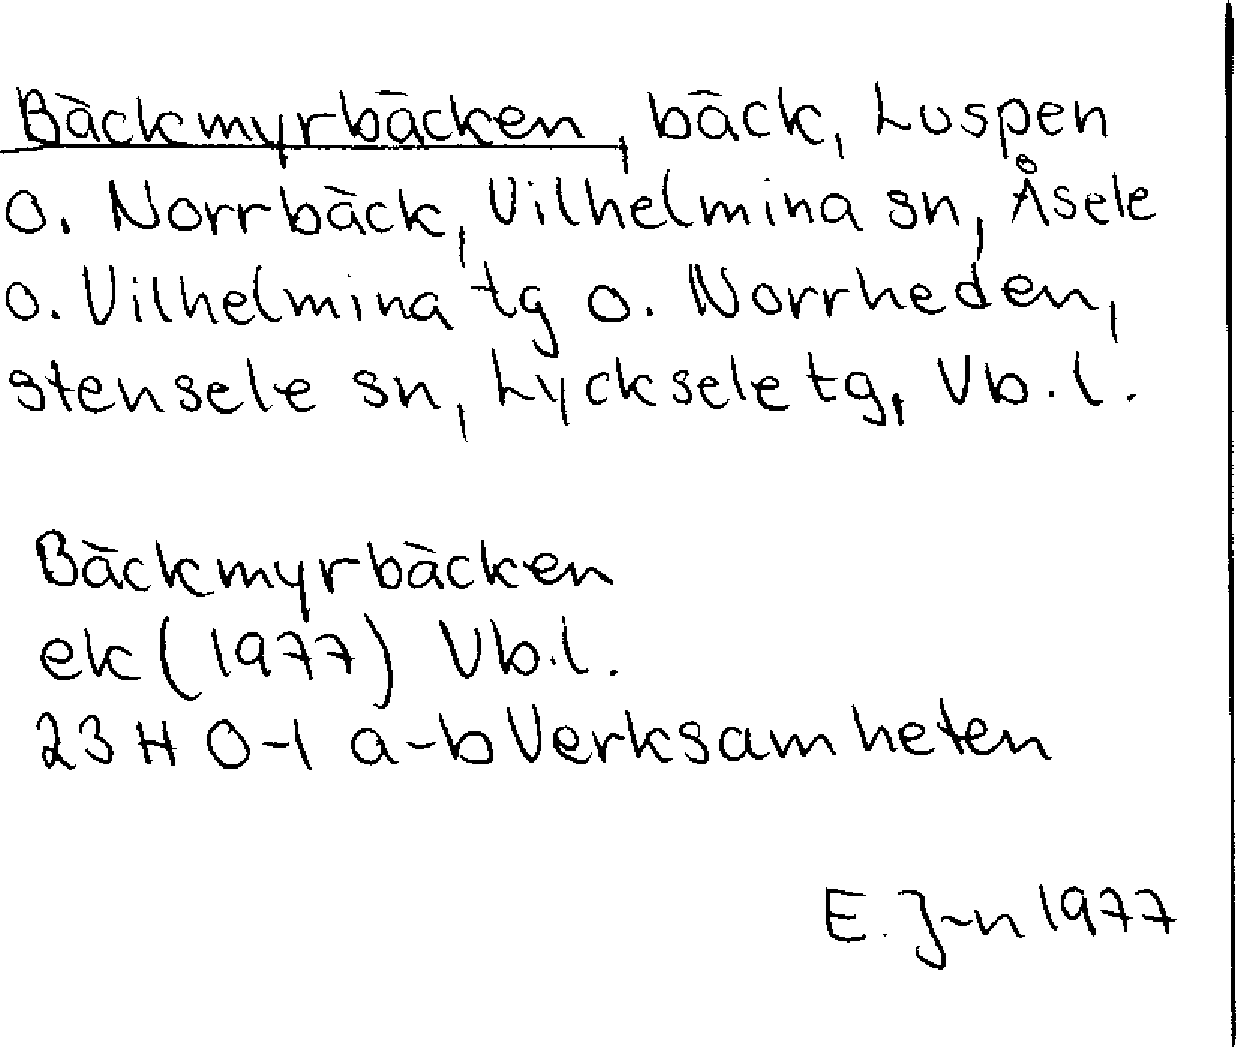 Bäckmyrbäcken, bäck, Luspen
o. Norrbäck, Vilhelmina sn, Åsele
o. Vilhelmina tg o. Norrheden,
Stensele sn, Lycksele tg, Vb.l.
Bäckmyrbäcken
ek (1977) Vb.l.
23 H 0-1 a-b Verksamheten
E. J-n 1977